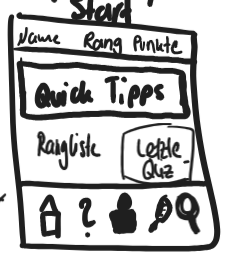 Start
Name Rang Punkte
Quick Tipps
Rangliste Letzte
Quiz
?